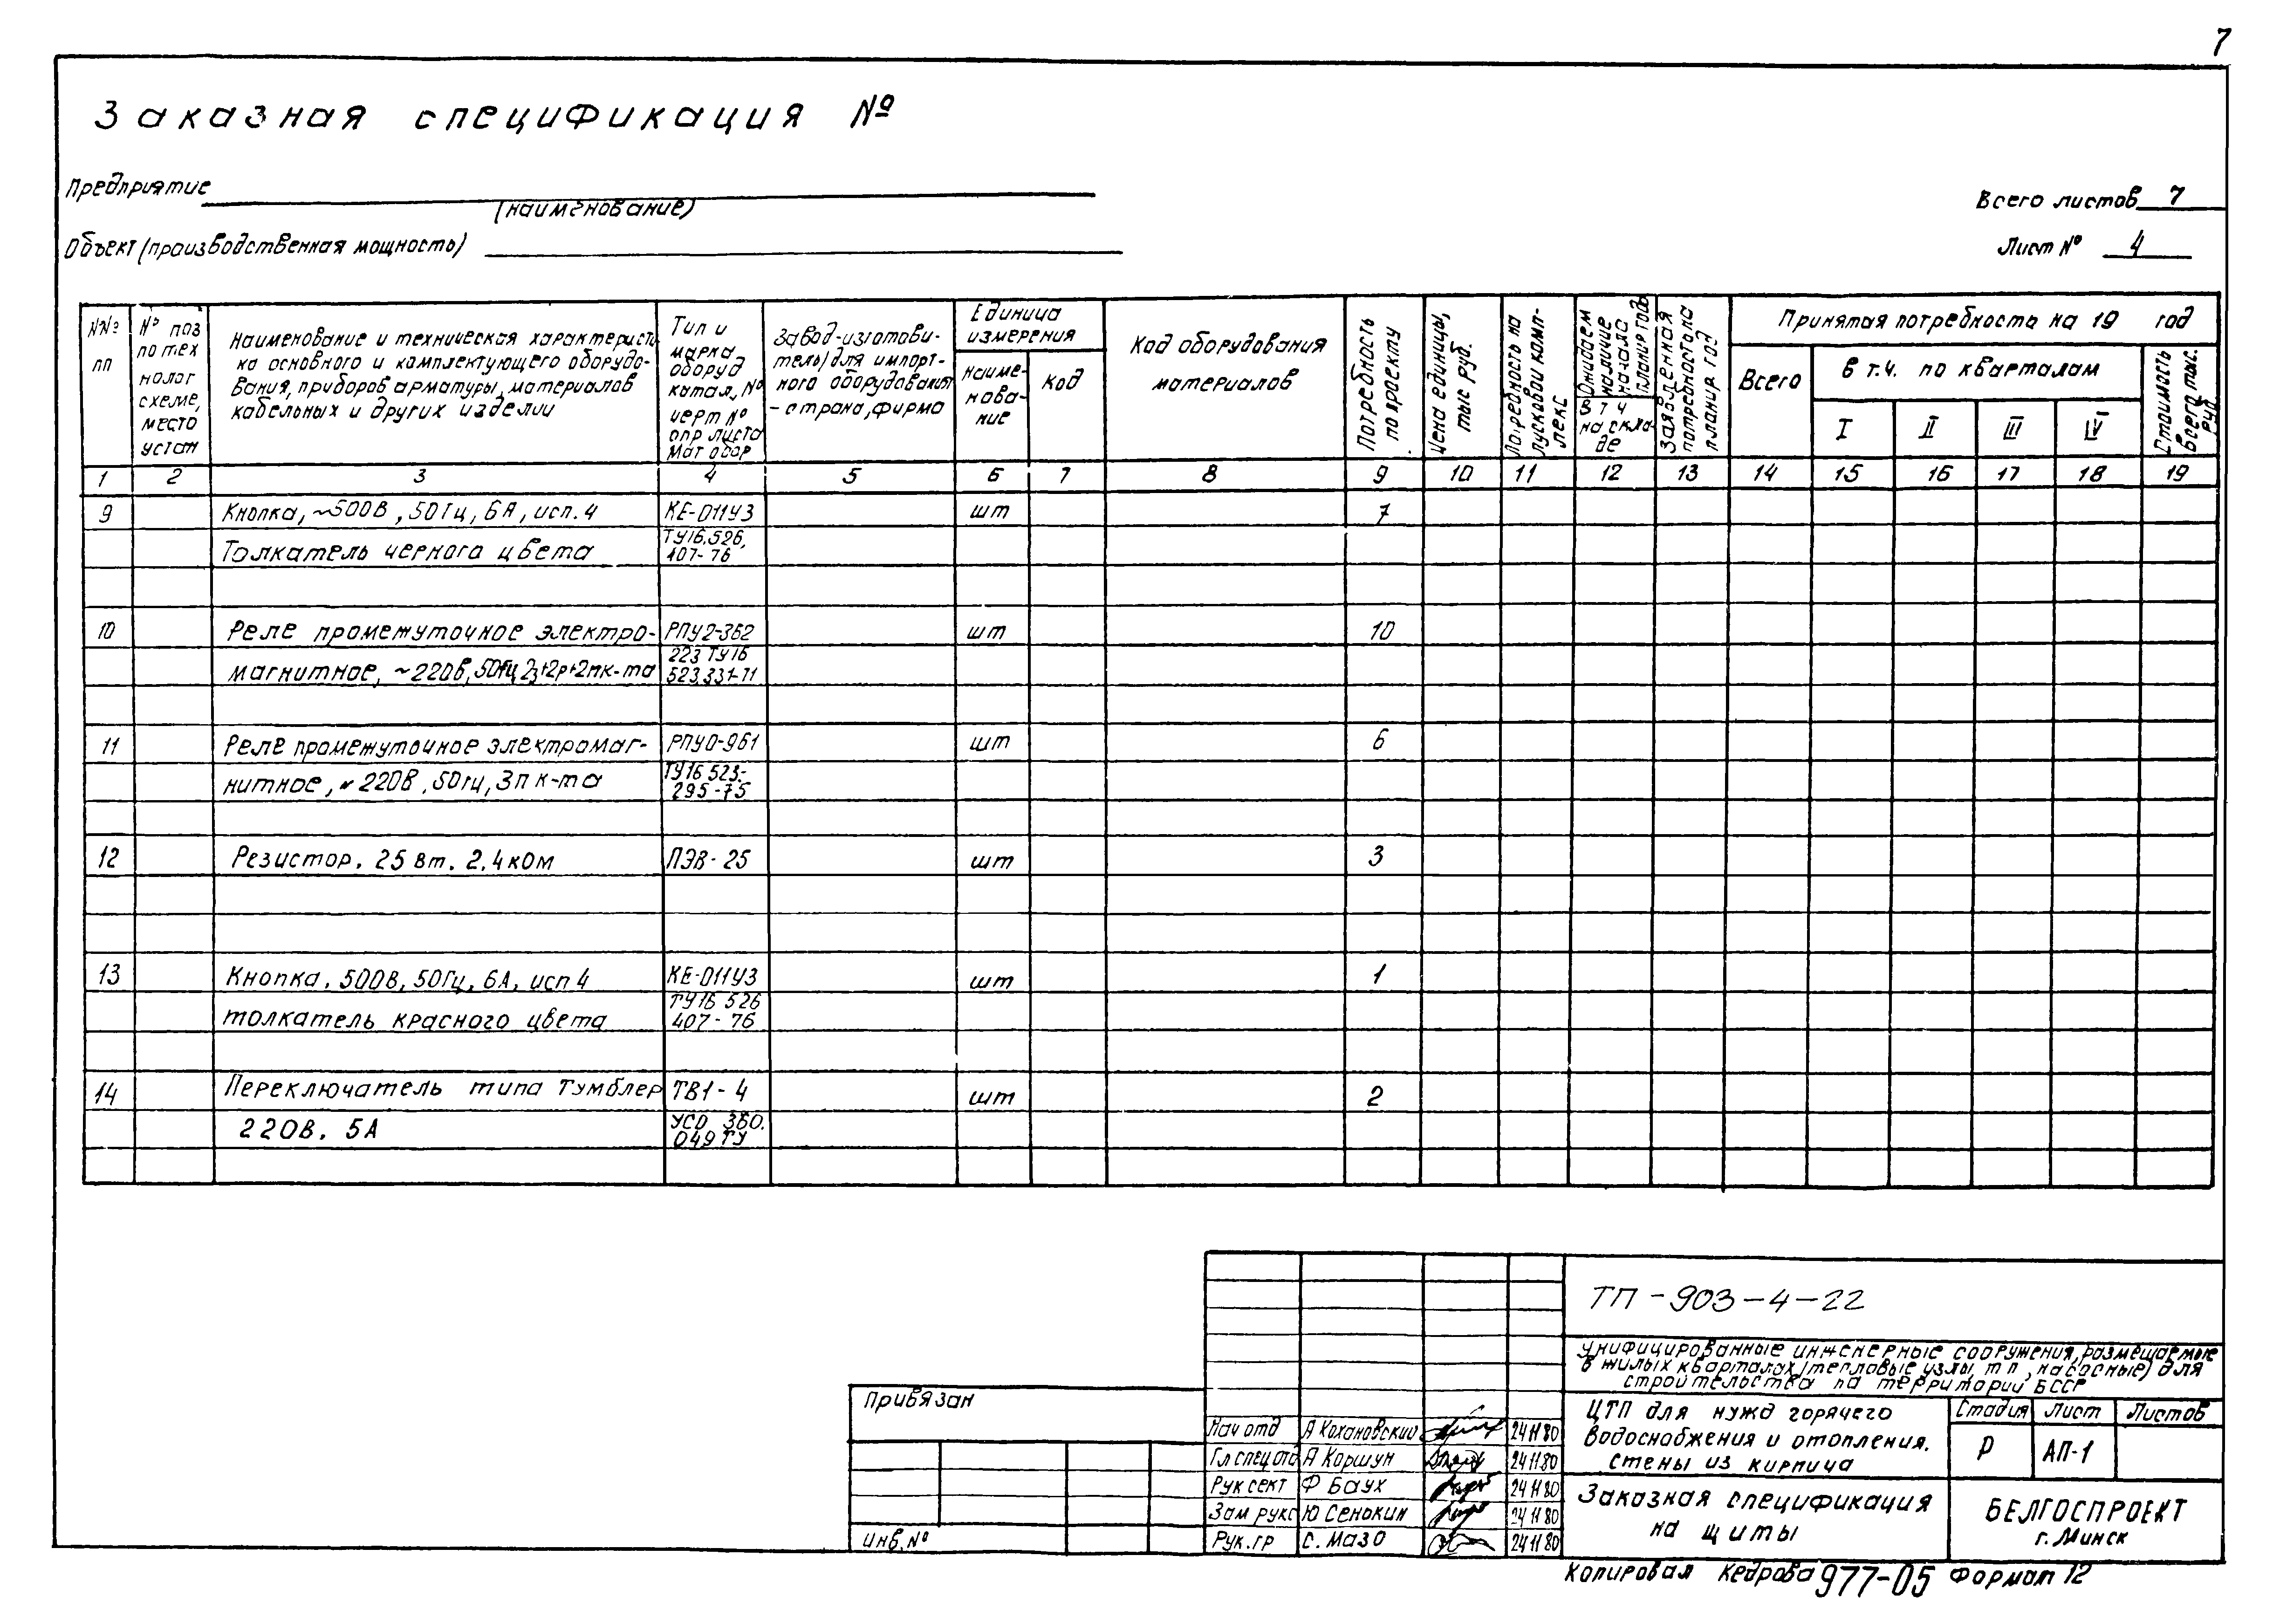 7
Заказная спецификация №
Предприятие
(наименование)
Всего листов 7
Объект (производственная мощность)
Лист № 4
№№ пп
№ поз по тех нолог схеме, место устан
Наименование и техническая характеристи
ка основного и комплектующего оборудо-
вания, приборов арматуры, материалов
кабельных и других изделии
Тип и марка оборуд катал, № черт № опр листа мат обор
Завод-изготови-
тель/для импорт-
ного оборудования
- страна, фирма
Единица измерения
наиме-
нова-
ние
код
Код оборудования материалов
Потребность по проекту
Цена единицы, тыс руб.
Потребность на пусковой комп-
лекс
Ожидаем наличие начала планир года
В т ч на скла-
де
Заявленная потребность на планир год
Принятая потребность на 19 год
Всего
в т.ч. по кварталам
I II III IV
Стоимость всего, тыс. руб.
1 2 3 4 5 6 7 8 9 10 11 12 13 14 15 16 17 18 19
9 Кнопка, ~500В, 50Гц, 6А, исп. 4 КЕ-011У3 шт 7
Толкатель черного цвета ТУ16.526.
407-76
10 Реле промежуточное электро- РПУ2-362 шт 10
магнитное, ~220В, 50Гц 2з+2р+2пк-та 223 ТУ16
523.331-71
11 Реле промежуточное электромаг- РПУ0-961 шт 6
нитное, ~220В, 50Гц, 3п к-та ТУ16 523.-
295-75
12 Резистор. 25 вт. 2,4 ком ПЭВ-25 шт 3
13 Кнопка, 500В, 50Гц, 6А, исп 4 КЕ-011У3 шт 1
толкатель красного цвета ТУ16 526
407-76
14 Переключатель типа Тумблер ТВ1-4 шт 2
220В. 5А УСО 360.
049 ТУ
ТП-903-4-22
Унифицированные инженерные сооружения, размещаемые
в жилых кварталах/тепловые узлы, тп, насосные) для
строительства на территории БССР
Привязан
Инв. №
ЦТП для нужд горячего
водоснабжения и отопления.
стены из кирпича
Стадия Лист Листов
Р АП-1
Нач отд А Кохановский 24 11 80
Гл спец отд А Коршун 24 11 80
Рук сект Ф Баух 24 11 80
Зам рукс Ю Сенокин 24 11 80
Рук. гр С. Мазо 24 11 80
Заказная спецификация
на щиты
БЕЛГОСПРОЕКТ
г. Минск
Копировал Кедрова 977-05 Формат 12